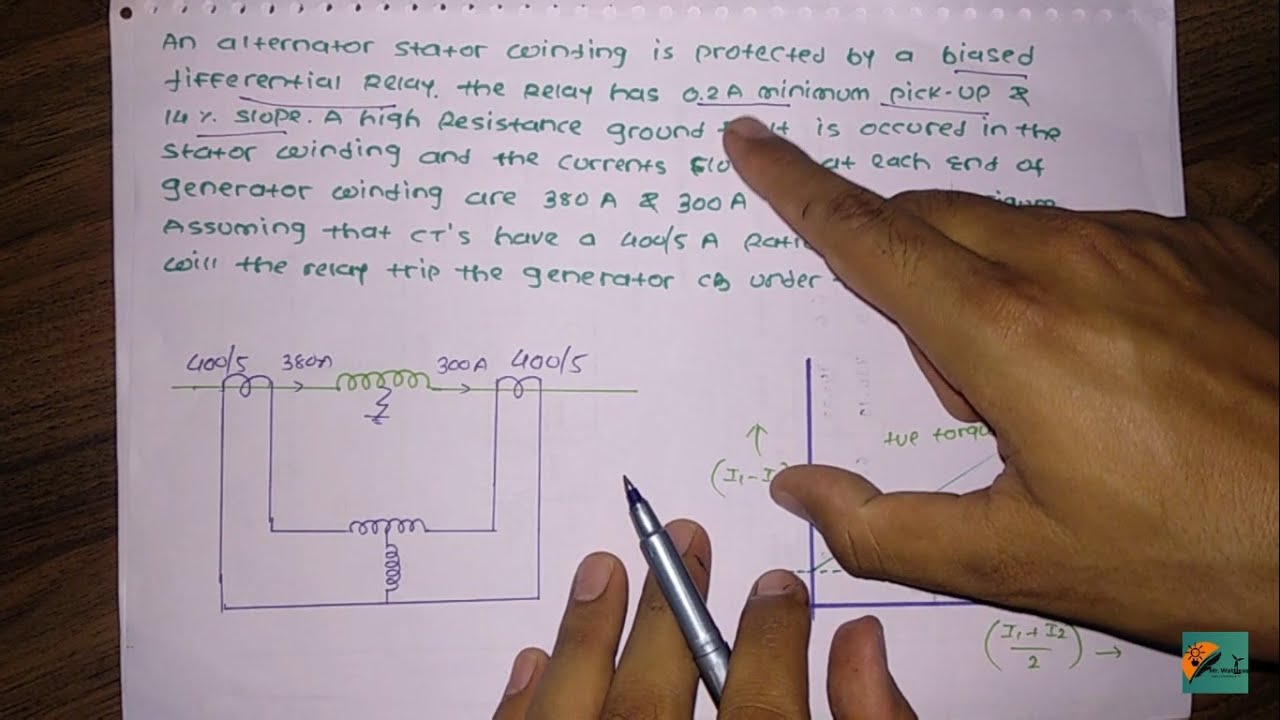 An alternator stator winding is protected by a biased
differential Relay. the Relay has 0.2 A minimum pick-up &
14% slope. A high Resistance ground is occured in the
stator winding and the currents at each End of
generator winding are 380 A & 300 A
Assuming that CT's have a 400/5 A
will the relay trip the generator CB under
400/5 380A 300A 400/5
+ve
(I₁-I
(I₁+I₂/2) →
Mr.